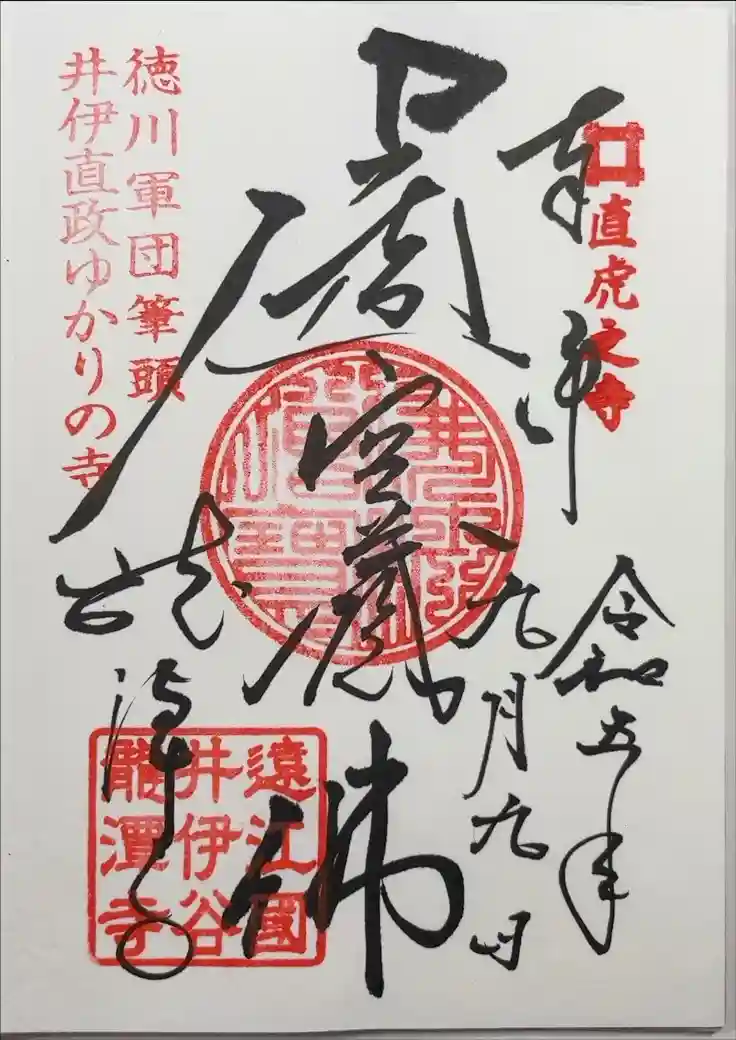 直虎之寺
奉拝
令和五年
九月九日
虚空蔵佛
龍潭寺
徳川軍団筆頭
井伊直政ゆかりの寺
遠江國
井伊谷
龍潭寺